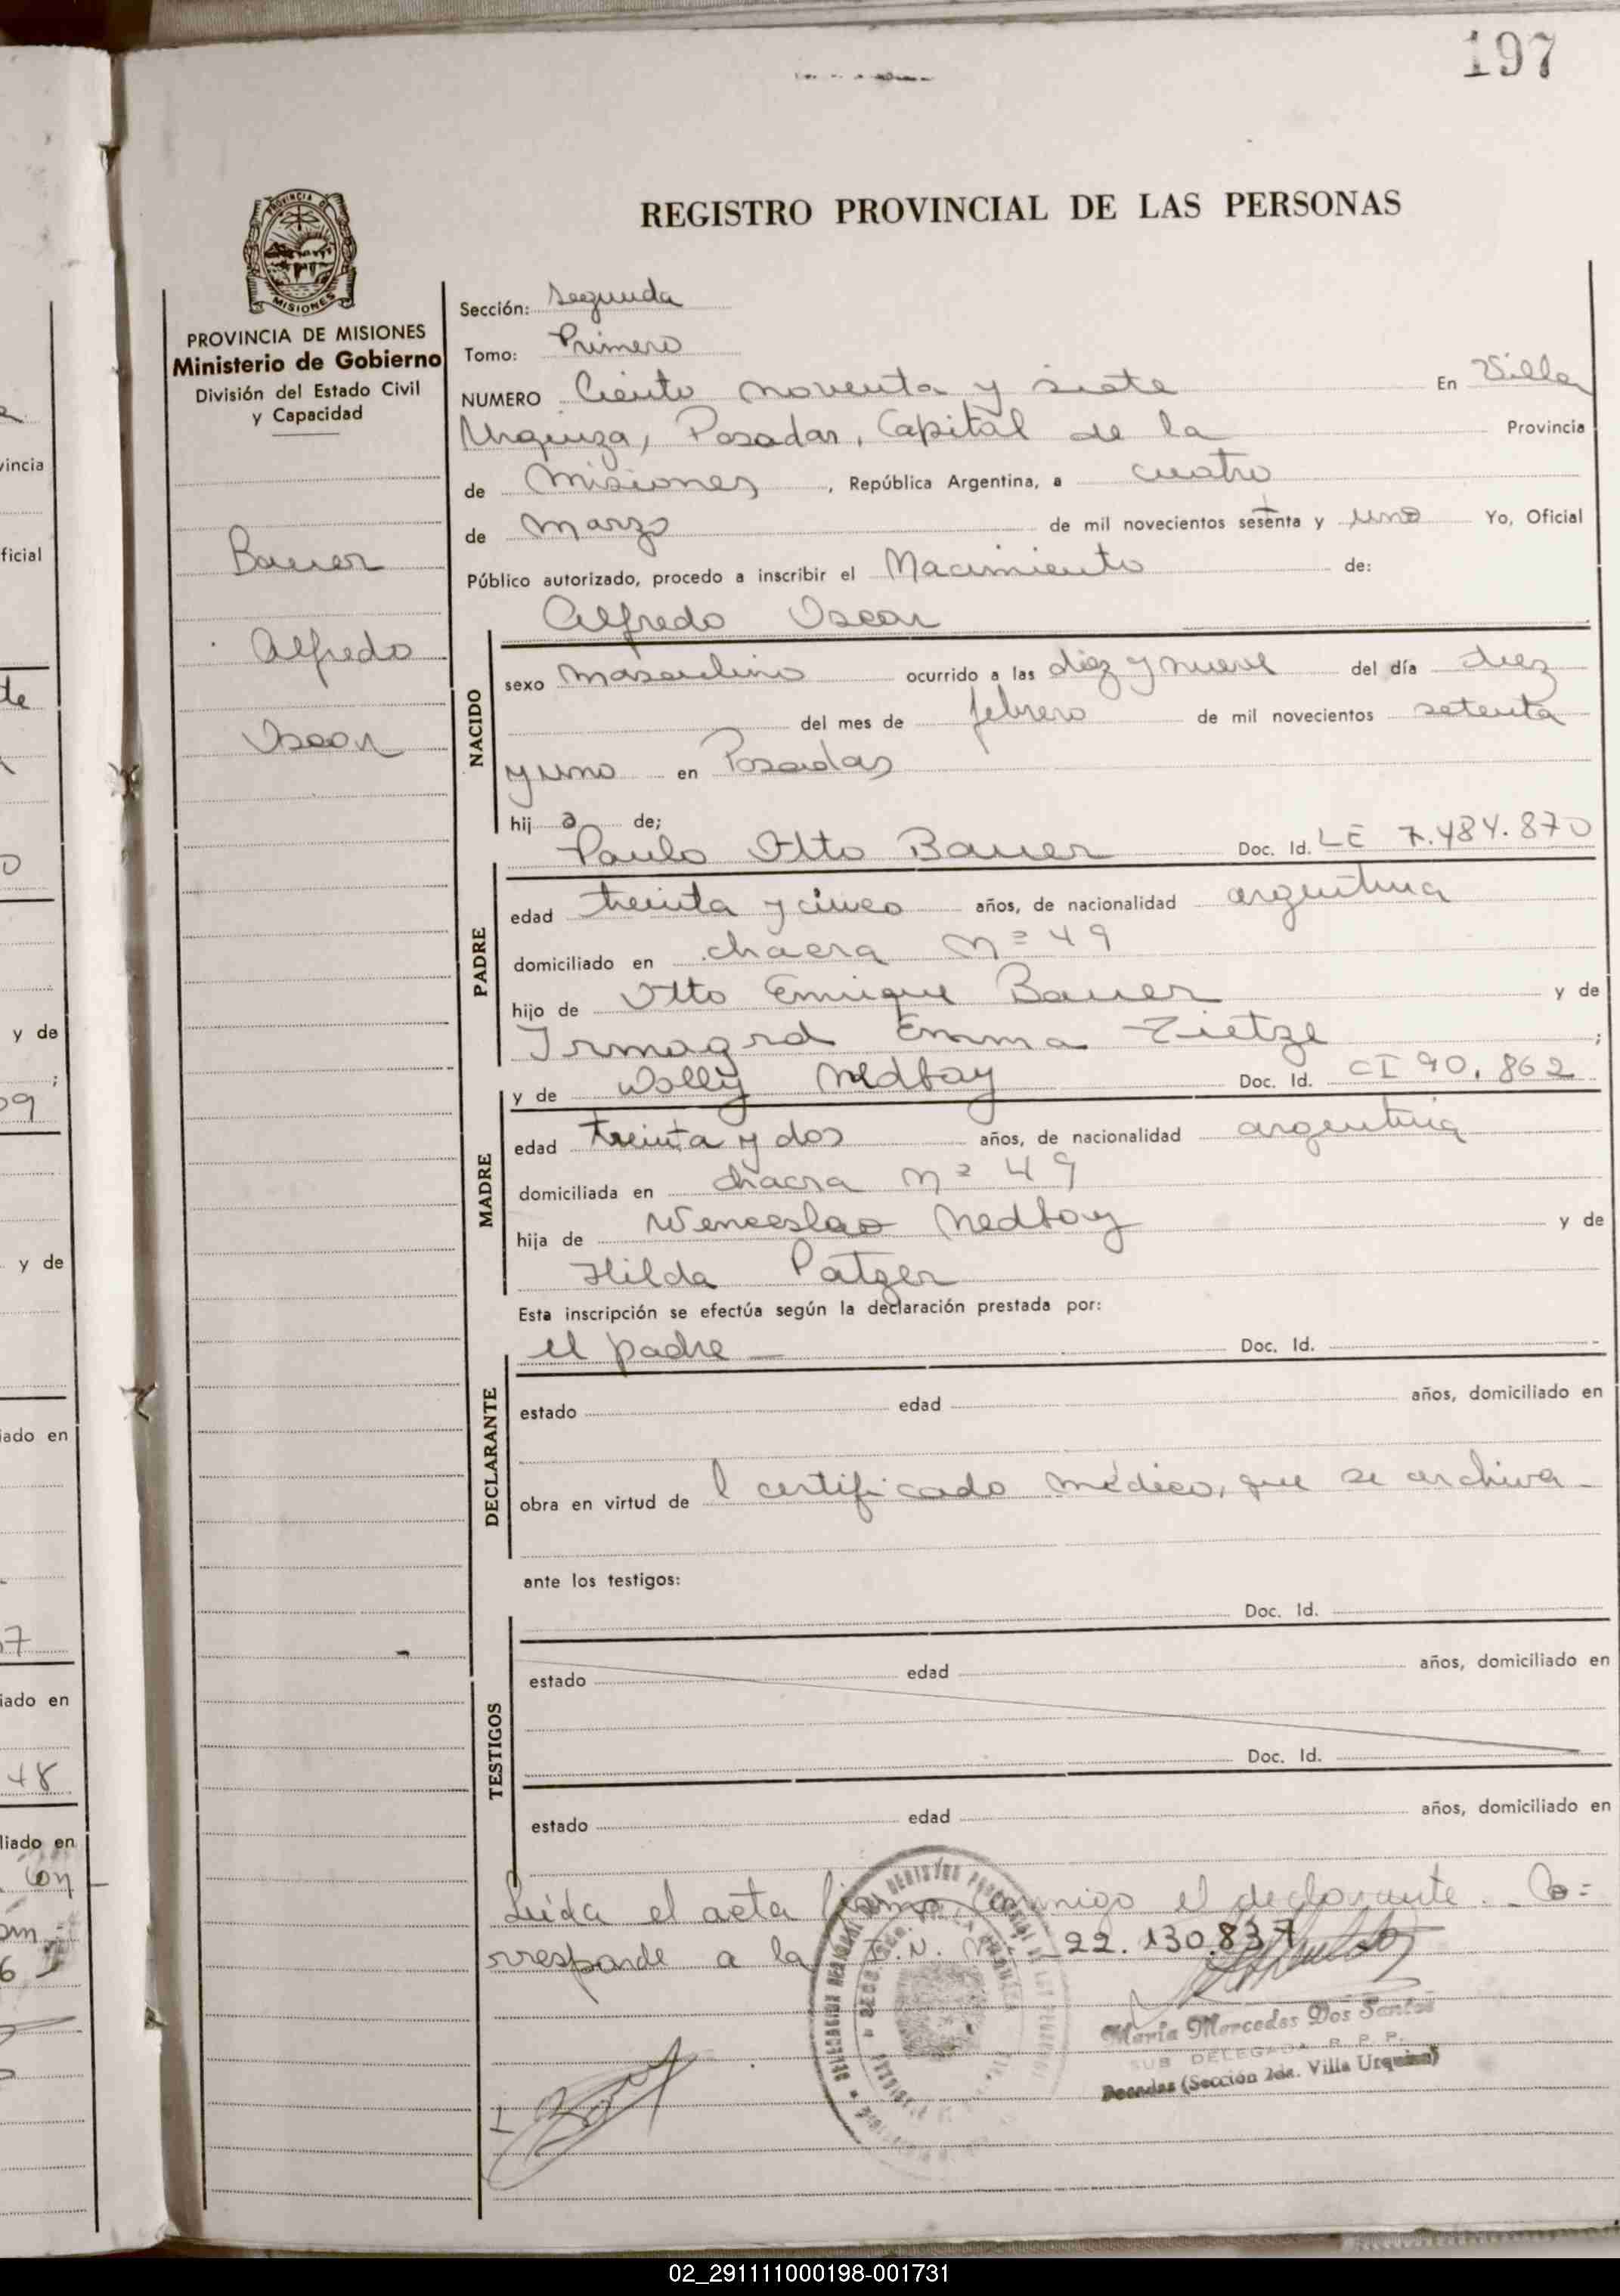 197
REGISTRO PROVINCIAL DE LAS PERSONAS
PROVINCIA DE MISIONES
Ministerio de Gobierno
División del Estado Civil
y Capacidad
Bauer
Alfredo
Oscar
Sección: Segunda
Tomo: Primero
NUMERO Ciento noventa y siete En Villa
Urquiza, Posadas, Capital de la Provincia
de Misiones, República Argentina, a cuatro
de Marzo de mil novecientos sesenta y uno Yo, Oficial
Público autorizado, procedo a inscribir el Nacimiento de:
Alfredo Oscar
NACIDO
sexo masculino ocurrido a las diez y nueve del día diez
del mes de febrero de mil novecientos setenta
y uno en Posadas
hij o de;
Paulo Otto Bauer Doc. Id. LE 7.484.870
PADRE
edad treinta y cinco años, de nacionalidad argentina
domiciliado en chacra Nº 49
hijo de Otto Enrique Bauer y de
Irmagrd Emma Tietze ;
y de Wolly Nedbay Doc. Id. CI 90.862
MADRE
edad treinta y dos años, de nacionalidad argentina
domiciliada en chacra Nº 49
hija de Wenceslao Nedbay y de
Hilda Patzer
Esta inscripción se efectúa según la declaración prestada por:
el padre — Doc. Id.
DECLARANTE
estado edad años, domiciliado en
obra en virtud de l certificado médico, que se archiva -
ante los testigos:
Doc. Id.
TESTIGOS
estado edad años, domiciliado en
Doc. Id.
estado edad años, domiciliado en
Leída el acta firma conmigo el declarante. - Co=
rresponde a la I.N. Nº 22.130.837
María Mercedes Dos Santos
SUB DELEGADA R. P. P.
Posadas (Sección 2da. Villa Urquiza)
02_291111000198-001731